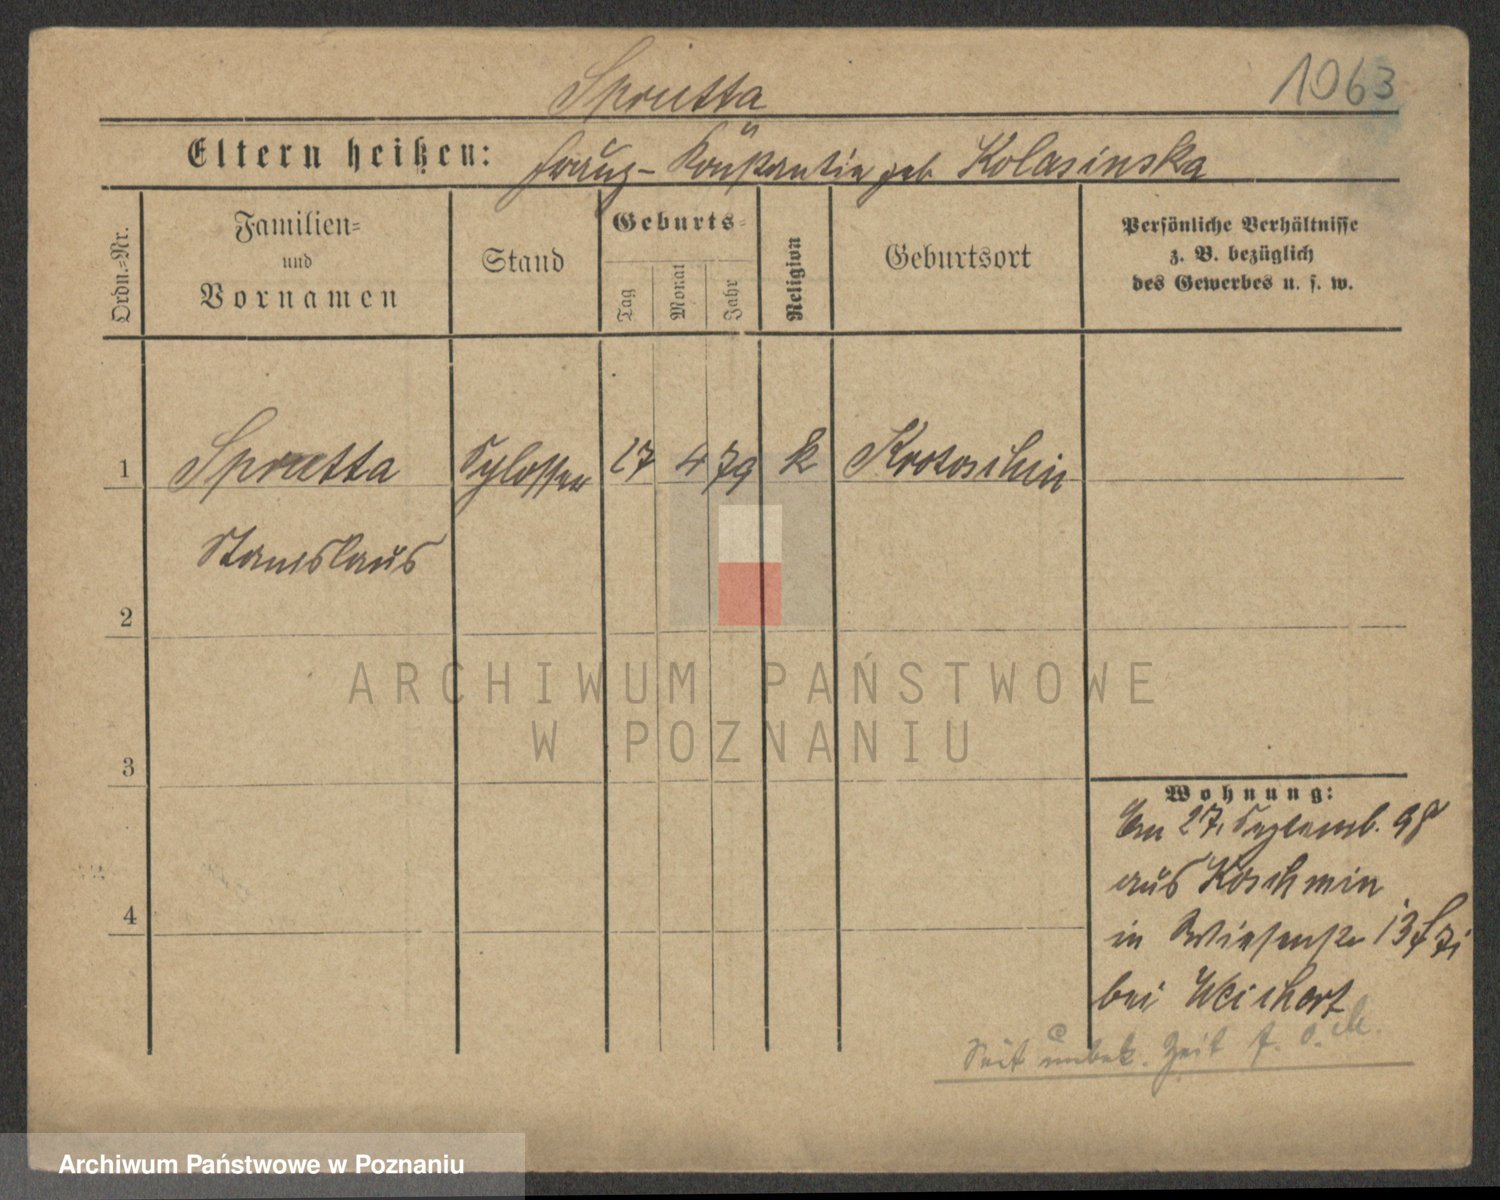 1063
Sprutta
Eltern heißen: Franz - Konstantia geb. Kolasinska
Ordn.-Nr.
Familien-
und
Vornamen
Stand
Geburts-
Tag
Monat
Jahr
Religion
Geburtsort
Persönliche Verhältnisse
z. B. bezüglich
des Gewerbes u. s. w.
1 Sprutta Schlosser 27 4 79 k Krotoschin
Stanislaus
2
ARCHIWUM PAŃSTWOWE
W POZNANIU
3
Wohnung:
Am 27. Septemb. 98
aus Koschmin
in Wiesenstr 13
4
bei Weichert
Seit unbek. Zeit
Archiwum Państwowe w Poznaniu